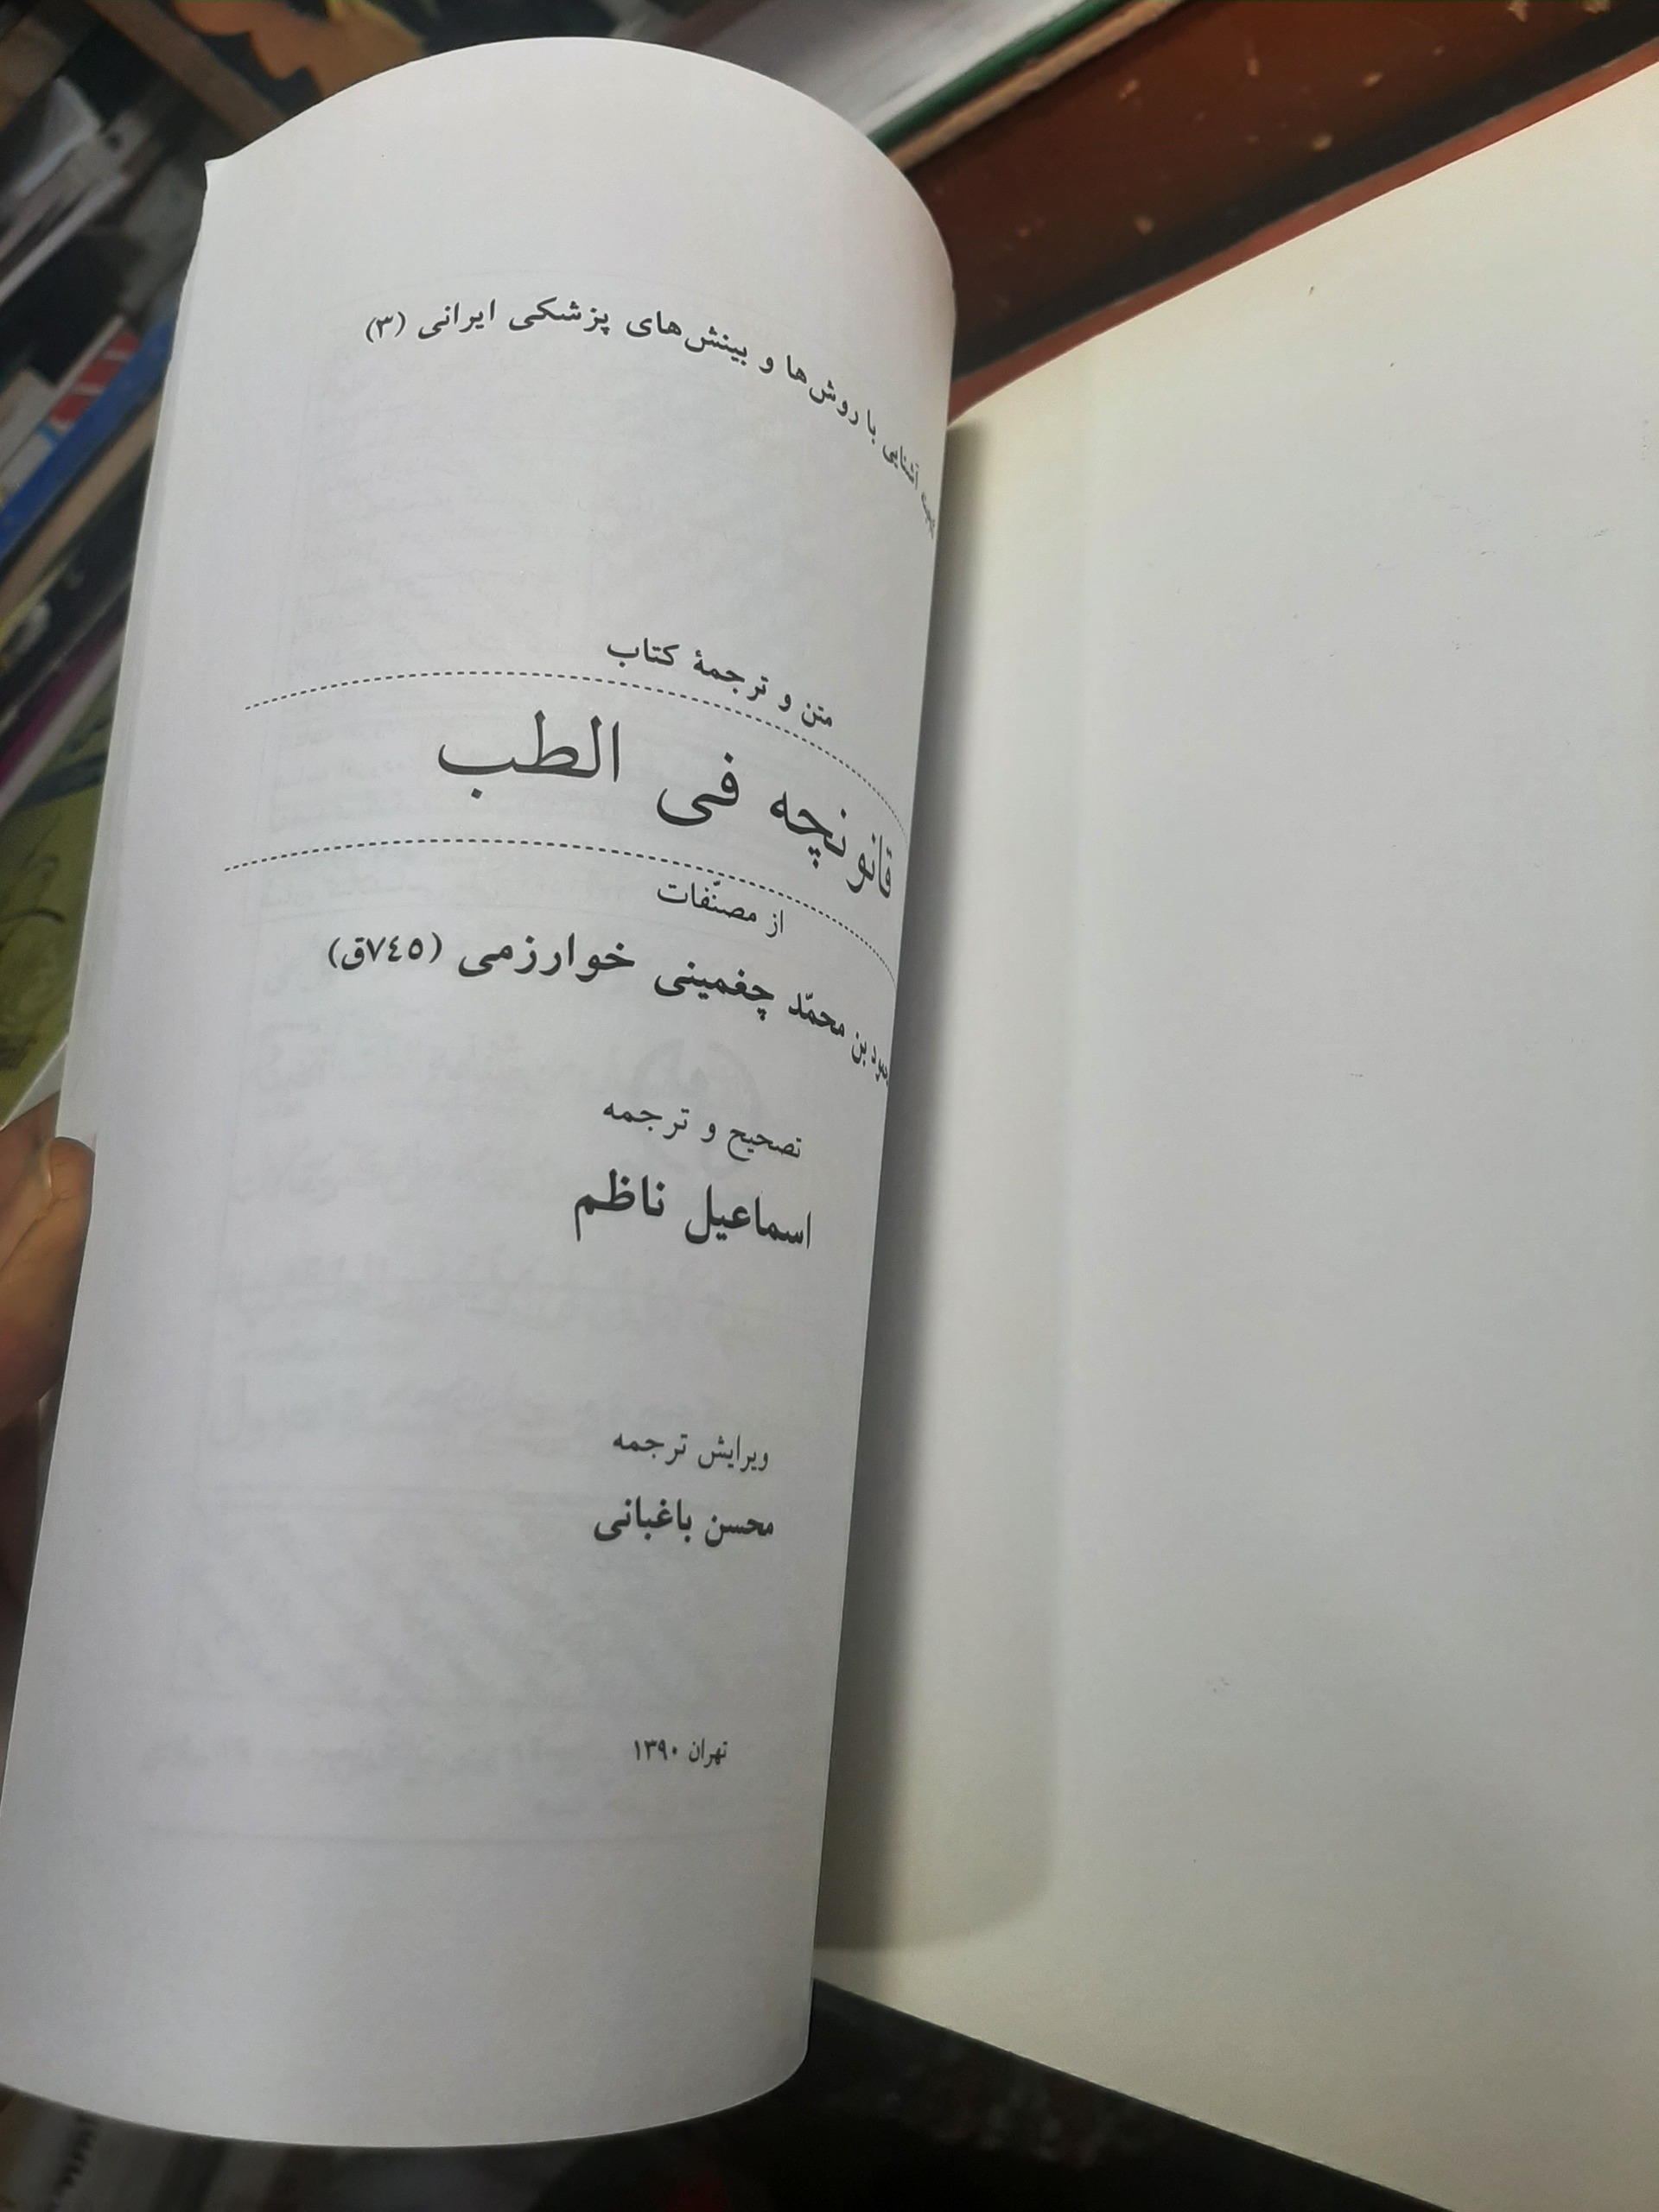 جهت آشنایی با روش‌ها و بینش‌های پزشکی ایرانی (۳)
متن و ترجمهٔ کتاب
قانونچه فی الطب
از مصنّفات
بن محمّد چغمینی خوارزمی (۷٤٥ق)
تصحیح و ترجمه
اسماعیل ناظم
ویرایش ترجمه
محسن باغبانی
تهران ۱۳۹۰